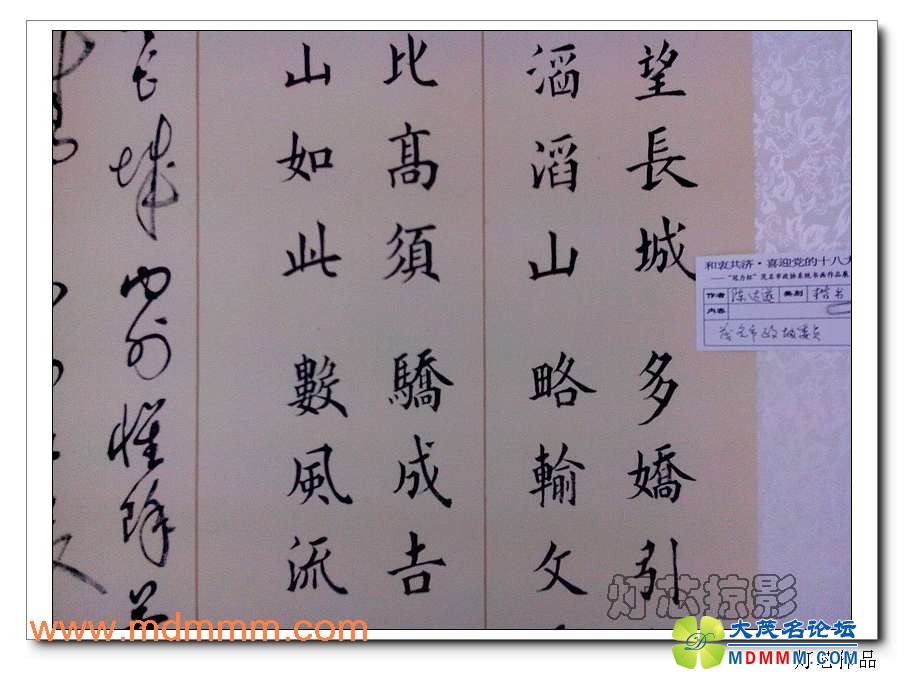 望長城 多嬌引
滔滔山 略輸文
比髙須 驕成吉
山如此 數風流
长城内外惟餘
和衷共济·喜迎党的十八
茂名市政协系统书画作品展
作者 陈 类别 楷书
内容
茂名市政协委员
灯芯掠影
www.mdmmm.com
大茂名论坛
MDMMM.COM
灯芯作品